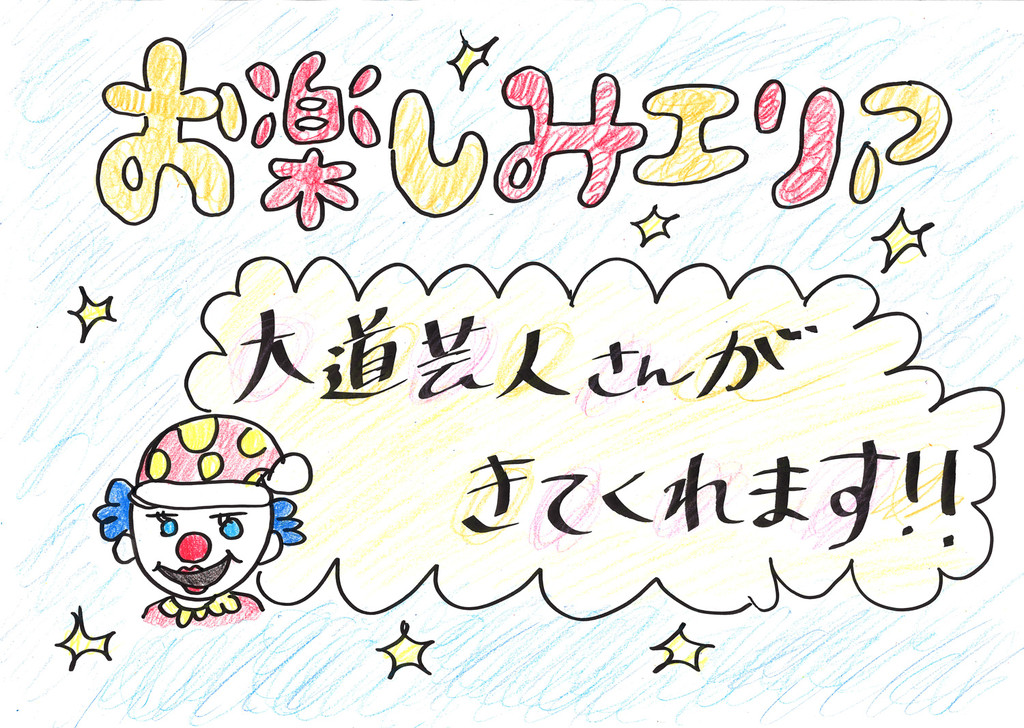 お楽しみエリア
大道芸人さんが
きてくれます!!